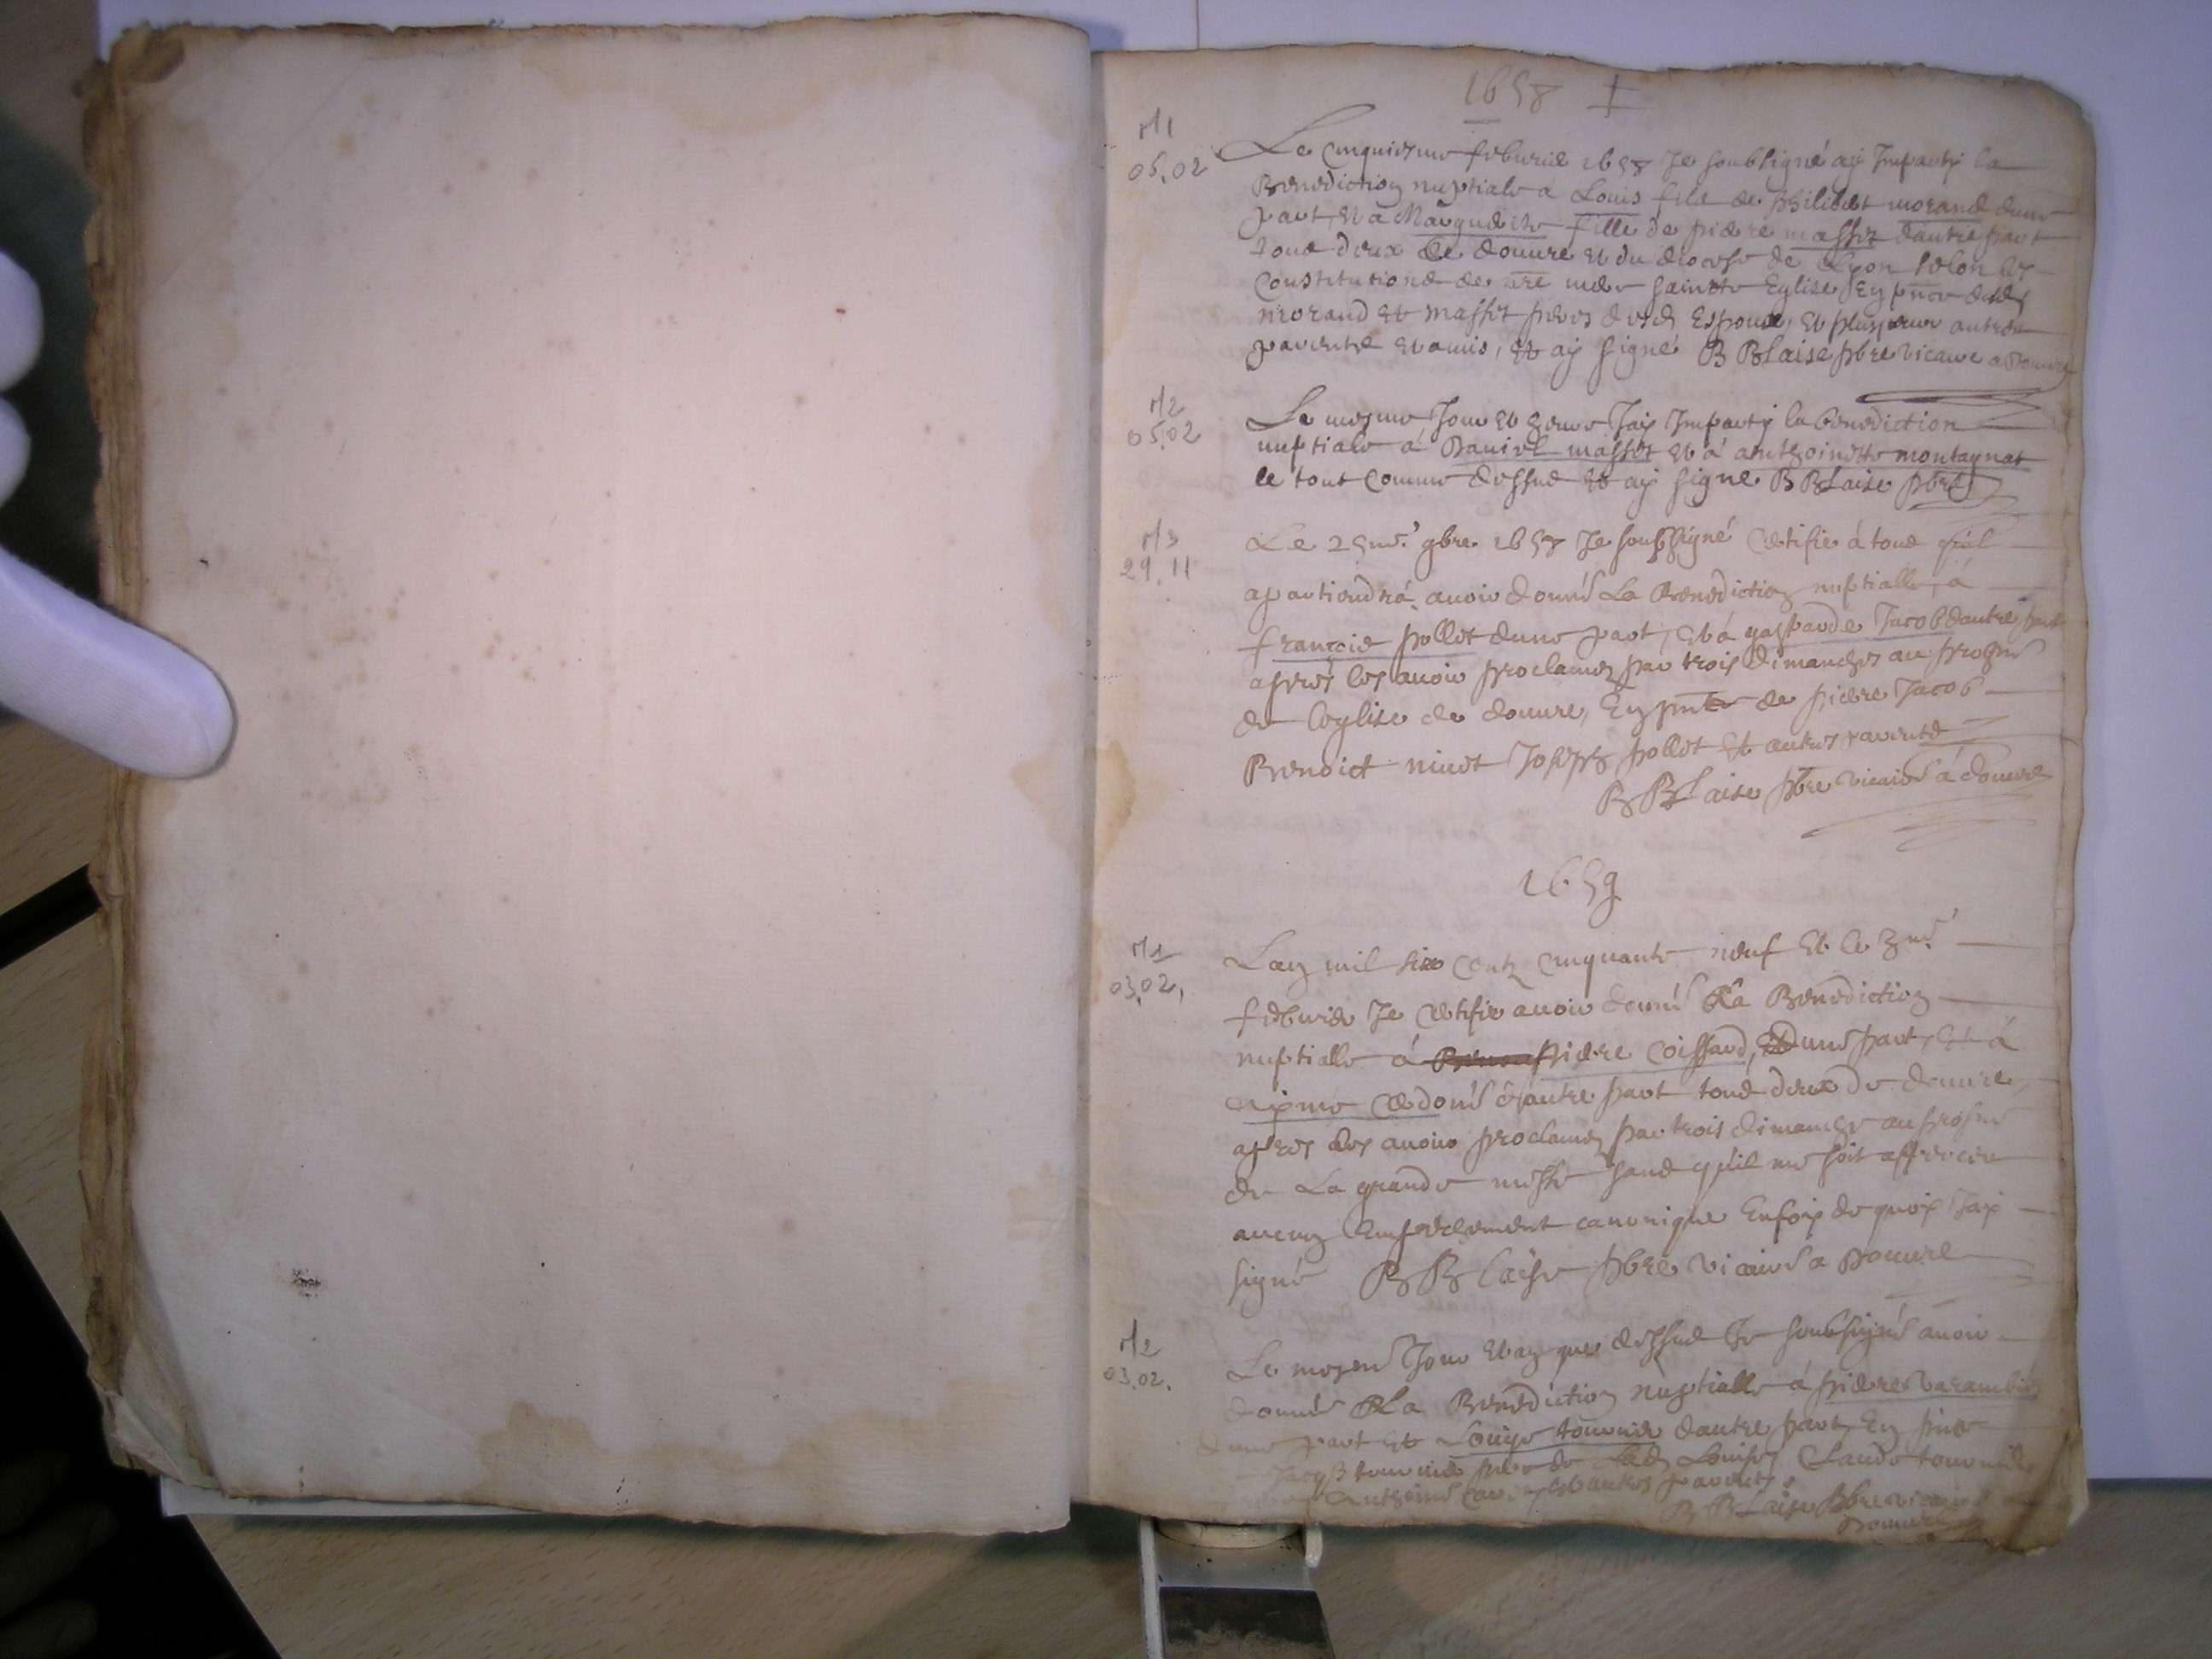 1658
M1
05.02
Le cinquiesme febvrie 1658 Je soubsigné ay Imparty la
Benediction nuptiale a Louis filz de philibert morand dune
part, et a Marguerite fille de pierre masset dautre part
tous deux de douvre et du diocese de Lyon selon les
Constitutions de nre mere saincte Eglise, En pnce desd
morand et masset peres desd Espoux, et plusieurs autres
parents et amis, et ay signé B BLaise pbre vicaire a Douvre
M2
05.02
Le mesme Jour et Jay Imparty la benediction
nuptiale á Daniel masset et á anthoinette montagnat
le tout comme dessus et ay signe B BLaise pbre
M3
29.11
Le 29me 9bre 1658 Je soubsigné certifie á tous quil
apartiendrá avoir donné La Benediction nuptialle, á
francois pollet dune part, et á gasparde Jacob dautre part
apres les avoir proclamez par trois dimanches au prosne
de leglise de douvre, En pnce de pierre Jacob
Benoict ninet Joseph pollet et autres parents
B BLaise pbre vicaire á douvre
1659
M1
03.02.
Lan mil six centz cinquante neuf et le 3me
febvrier Je certifie avoir donné La Benediction
nuptialle á pierre Coissard, dune part, et á
dautre part tous deux de douvre,
apres les avoir proclamez par trois dimanche au prosne
de La grande messe sans quil me soit
aucun Empechement canonique Enfoy de quoy Jay
signé B BLaise pbre vicaire a Douvre
M2
03.02.
Le mesme Jour et an que dessus Je soubsigné avoir
donné La Benediction nuptialle á pierre Varambier
dune part et Louyse tournier dautre part, En pnce
tournier pere de lad Louise, Claude tournier
Anthoine et autres parents.
B BLaise pbre vicaire a
Douvre